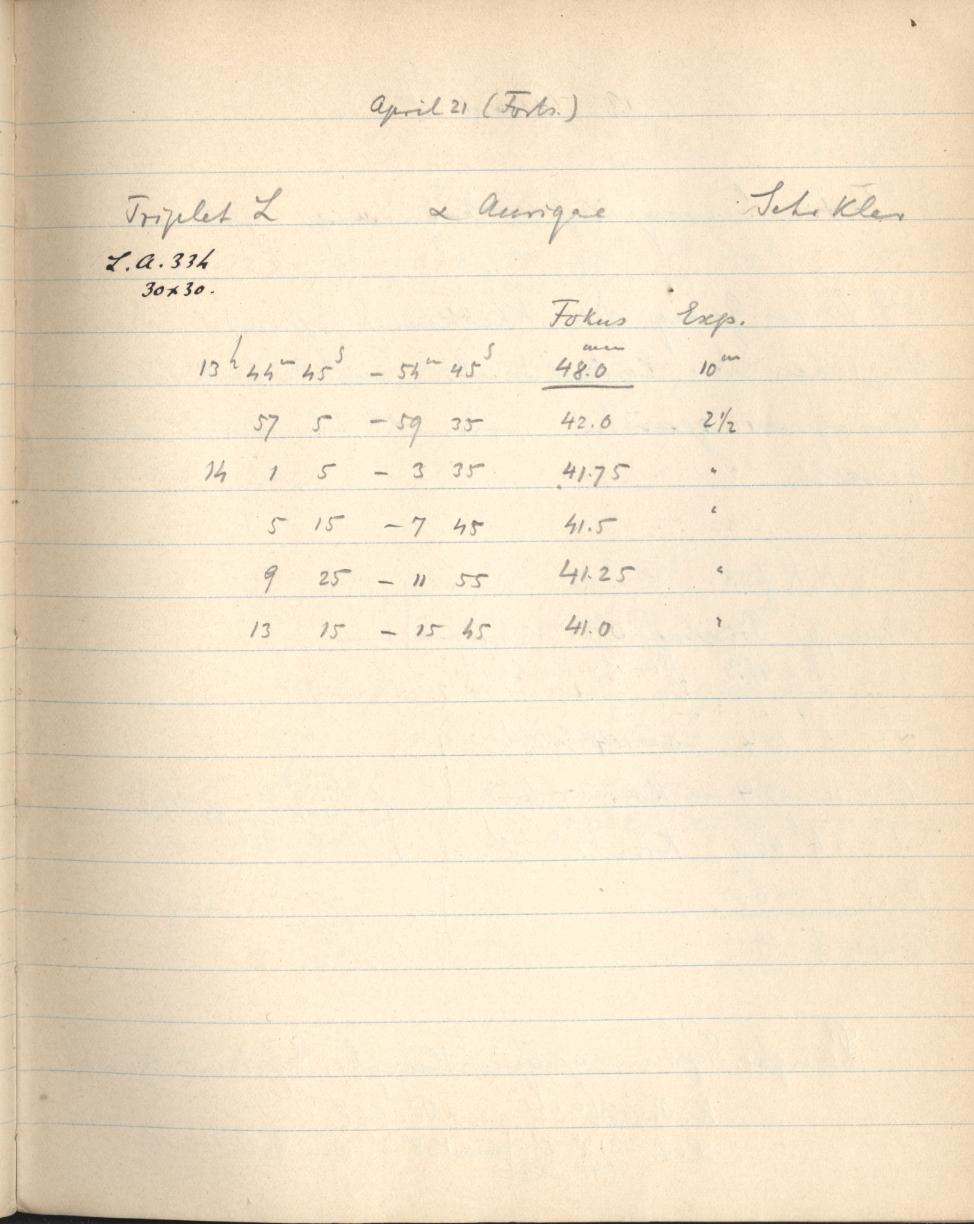 April 21 (Forts.)
Triplet L α Aurigae Schikler
L.A. 334
30×30.
Fokus Exp.
13h 44m 45s – 54m 45s 48.0mm 10m
57 5 – 59 35 42.0 2½
14 1 5 – 3 35 41.75 "
5 15 – 7 45 41.5 "
9 25 – 11 55 41.25 "
13 15 – 15 45 41.0 "